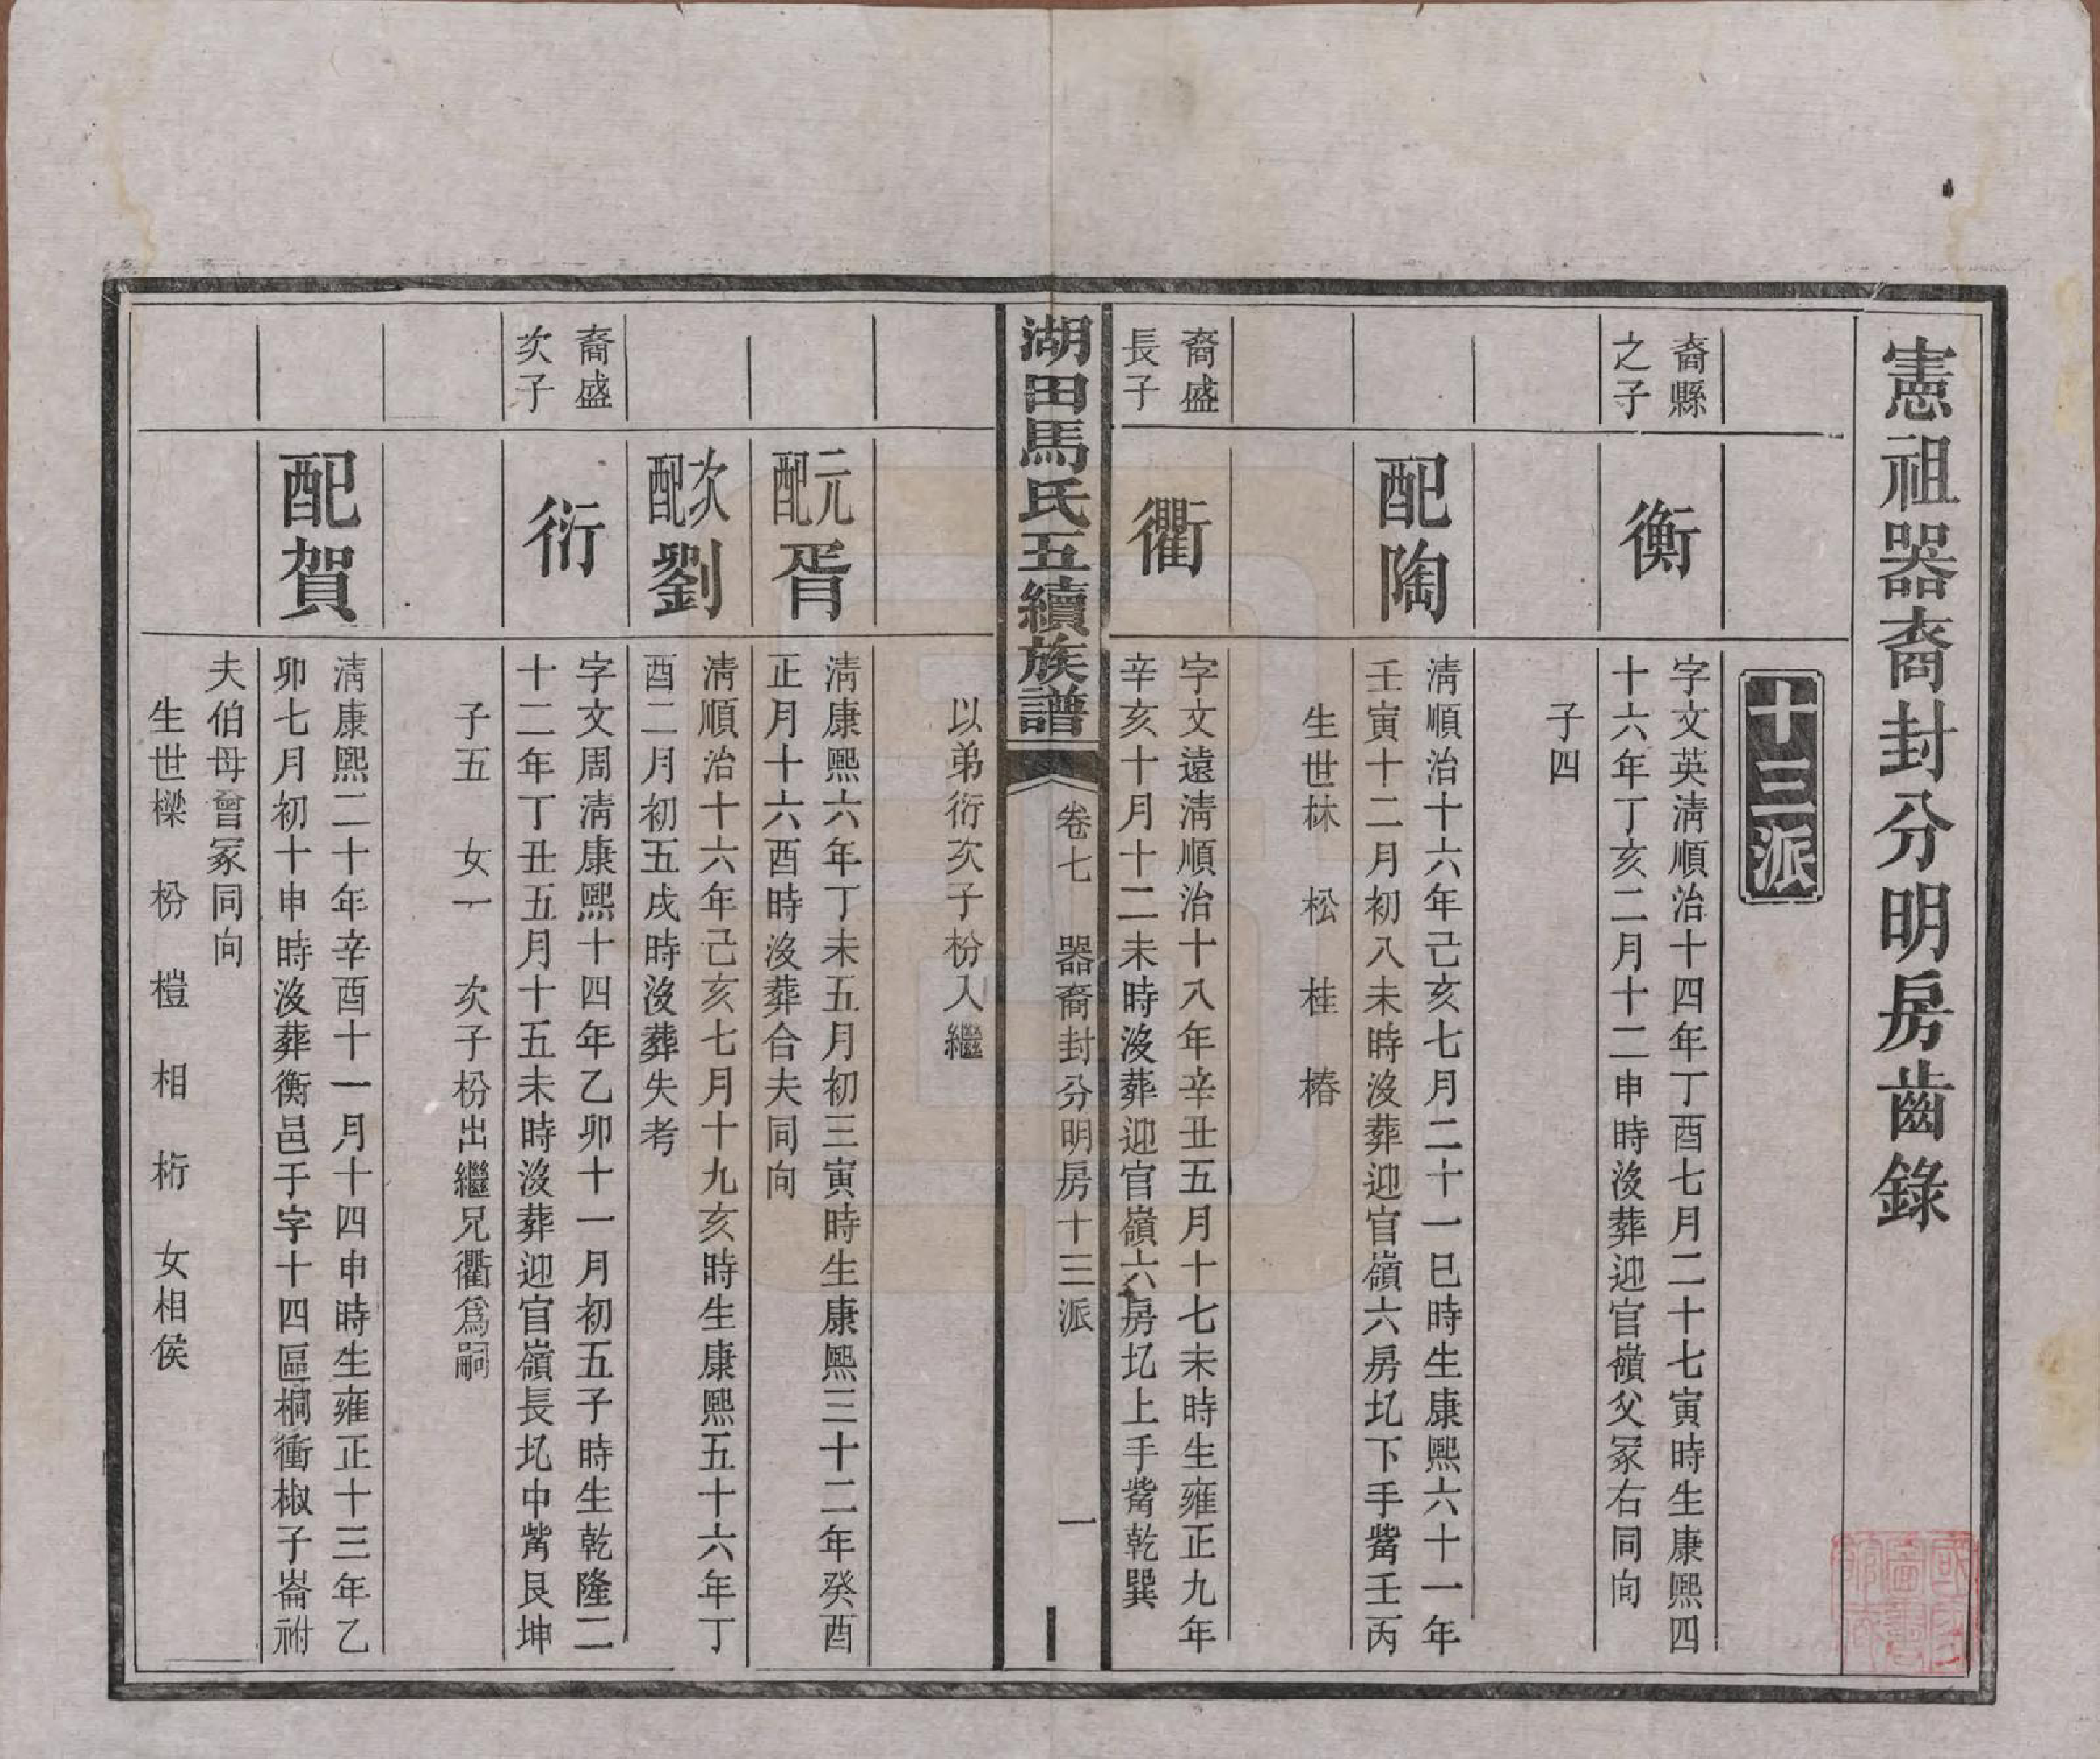 憲祖器裔封分明房齒錄
十三派
裔縣
之子
衡
字文英淸順治十四年丁酉七月二十七寅時生康熙四
十六年丁亥二月十二申時沒葬迎官嶺父冢右同向
子四
配陶
淸順治十六年己亥七月二十一巳時生康熙六十一年
壬寅十二月初八未時沒葬迎官嶺六房圠下手觜壬丙
生世㭉 松 桂 椿
裔盛
長子
衢
字文遠淸順治十八年辛丑五月十七未時生雍正九年
辛亥十月十二未時沒葬迎官嶺六房圠上手觜乾巽
湖田馬氏五續族譜
卷七 器裔封分明房十三派 一
以弟衍次子枌入繼
元配胥
淸康熙六年丁未五月初三寅時生康熙三十二年癸酉
正月十六酉時沒葬合夫同向
次配劉
淸順治十六年己亥七月十九亥時生康熙五十六年丁
酉二月初五戌時沒葬失考
裔盛
次子
衍
字文周淸康熙十四年乙卯十一月初五子時生乾隆二
十二年丁丑五月十五未時沒葬迎官嶺長圠中觜艮坤
子五 女一 次子枌出繼兄衢爲嗣
配賀
淸康熙二十年辛酉十一月十四申時生雍正十三年乙
卯七月初十申時沒葬衡邑于字十四區桐衝椒子崙祔
夫伯母曾冢同向
生世樑 枌 榿 相 桁 女相侯